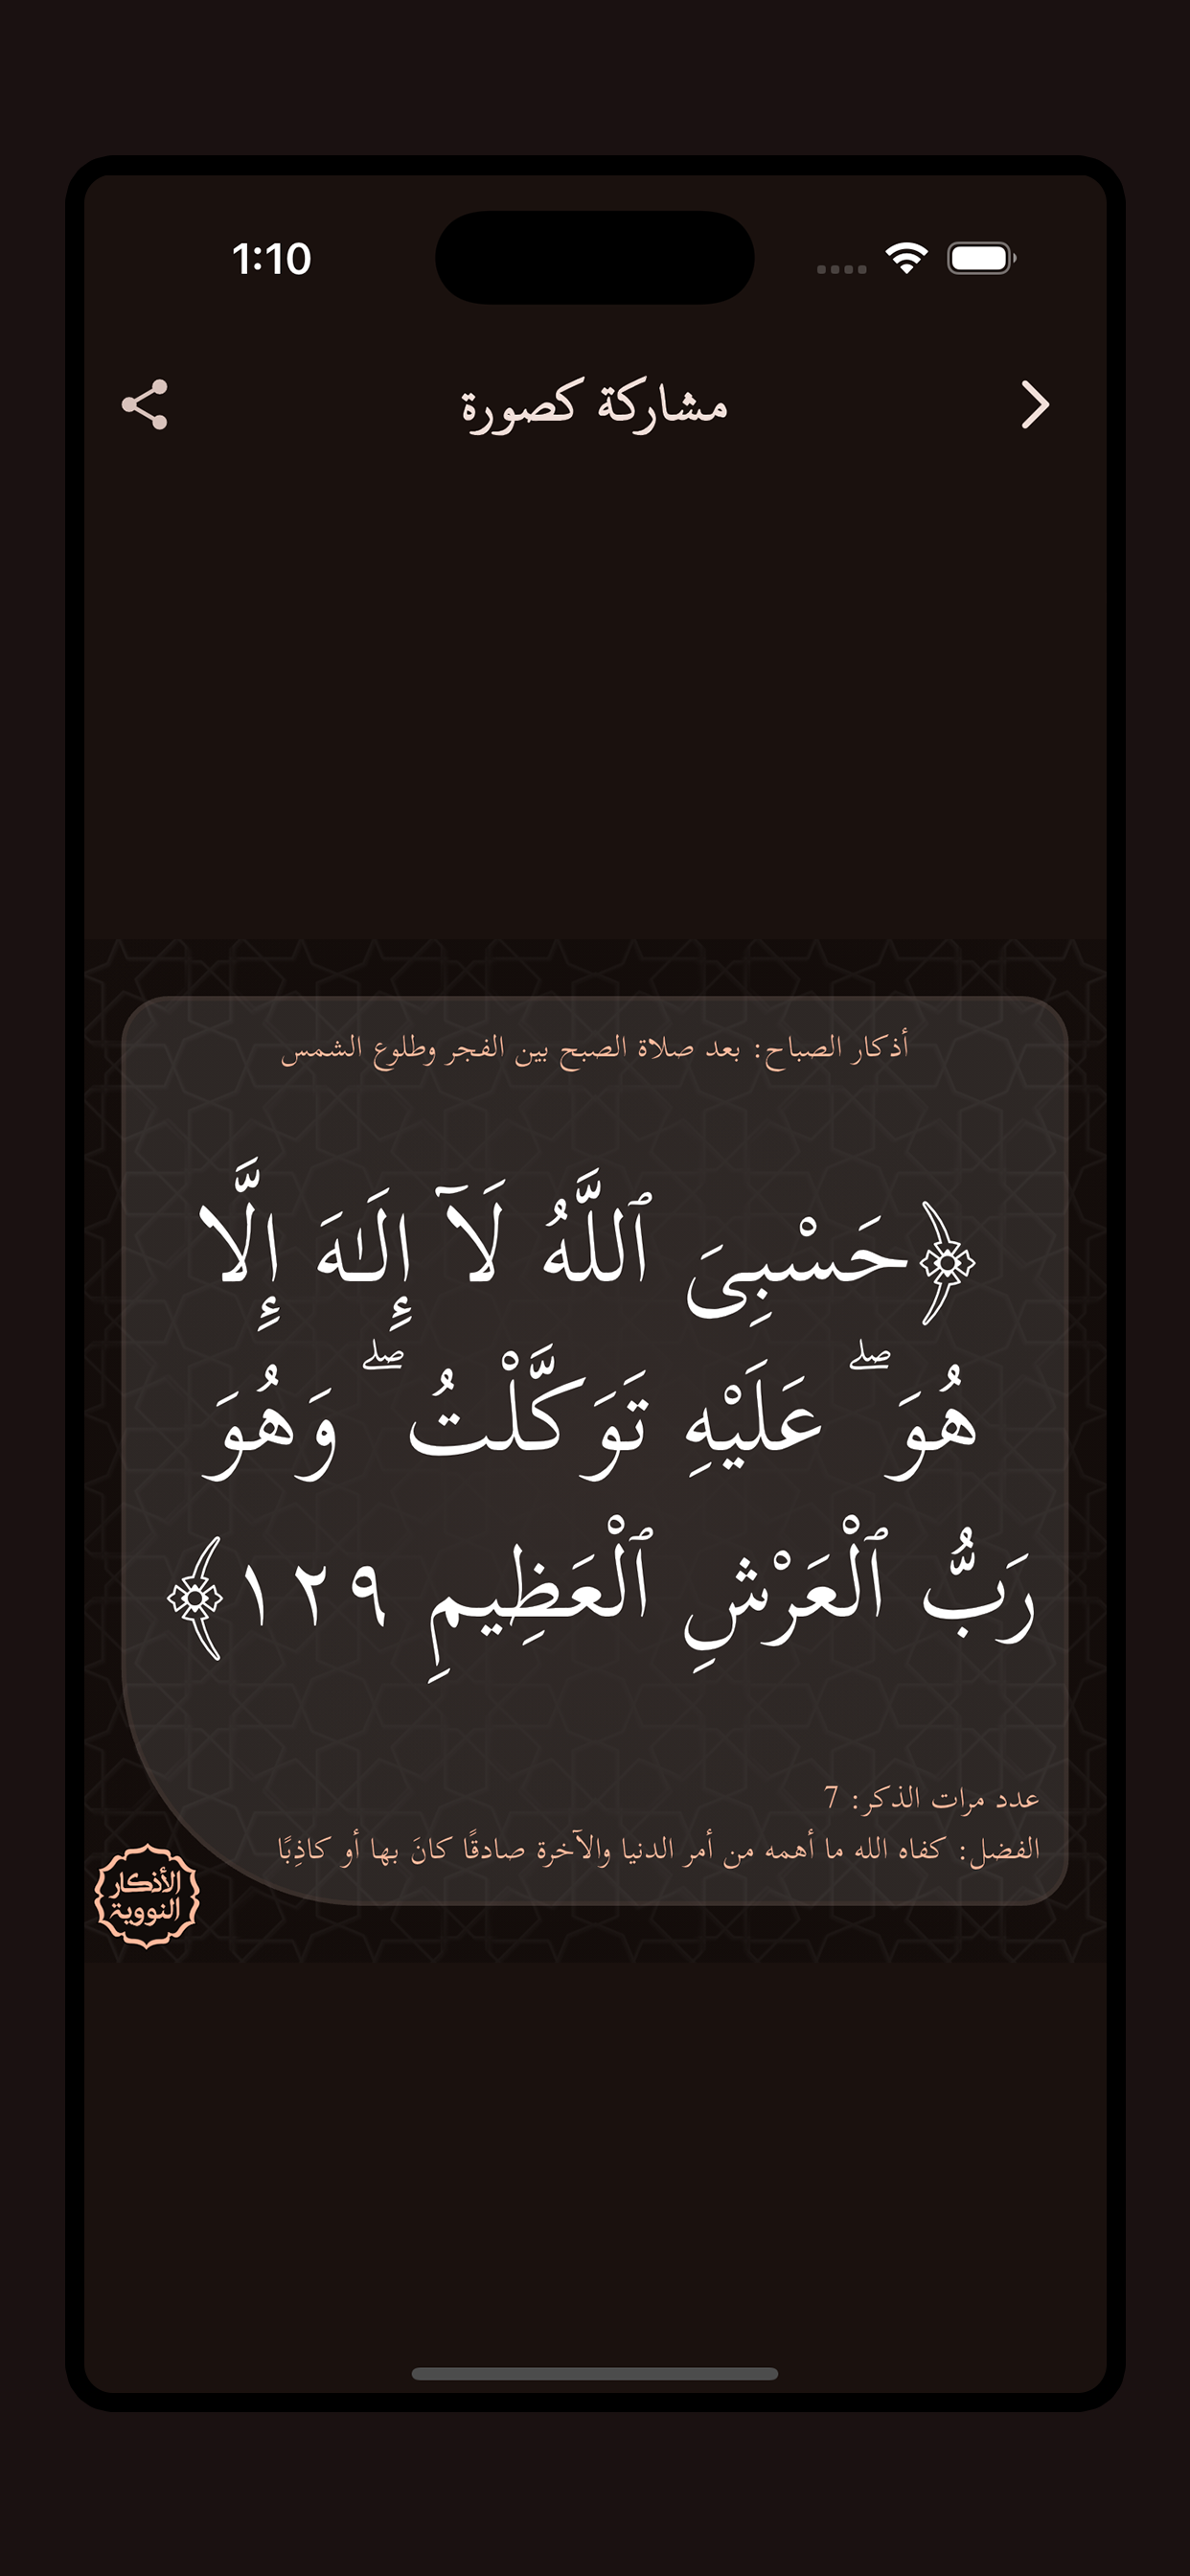 1:10
مشاركة كصورة
أذكار الصباح: بعد صلاة الصبح بين الفجر وطلوع الشمس
﴿حَسْبِىَ ٱللَّهُ لَآ إِلَـٰهَ إِلَّا
هُوَ ۖ عَلَيْهِ تَوَكَّلْتُ ۖ وَهُوَ
رَبُّ ٱلْعَرْشِ ٱلْعَظِيمِ ١٢٩﴾
عدد مرات الذكر: 7
الفضل: كفاه الله ما أهمه من أمر الدنيا والآخرة صادقًا كانَ بها أو كاذِبًا
الأذكار
النووية